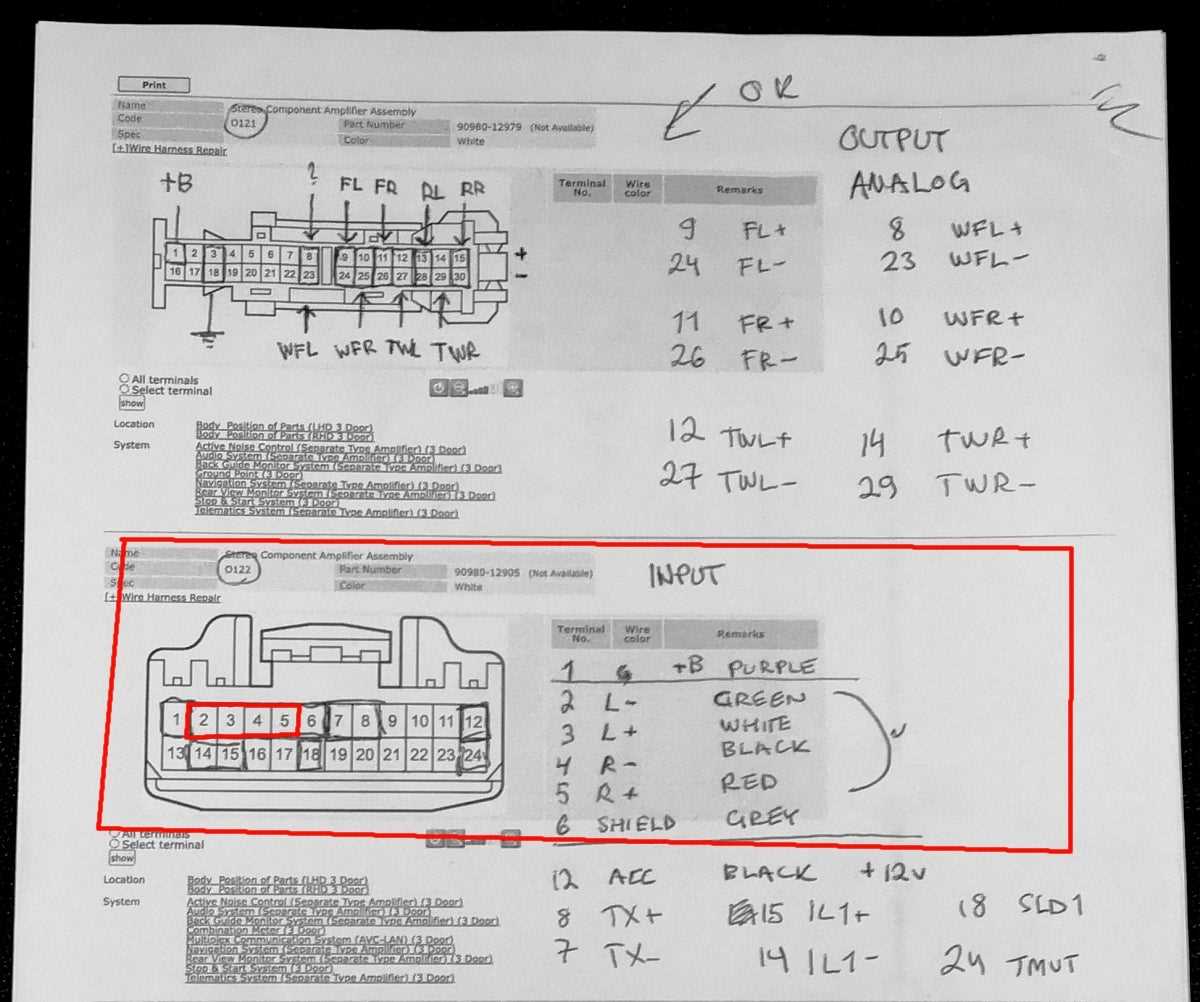 OR
Print
Name Stereo Component Amplifier Assembly
Code O121 Part Number 90980-12979 (Not Available)
Spec Color White
[+]Wire Harness Repair
OUTPUT
ANALOG
+B ? FL FR RL RR
1 2 3 4 5 6 7 8 9 10 11 12 13 14 15 +
16 17 18 19 20 21 22 23 24 25 26 27 28 29 30 -
WFL WFR TWL TWR
Terminal No. Wire color Remarks
9 FL+ 8 WFL+
24 FL- 23 WFL-
11 FR+ 10 WFR+
26 FR- 25 WFR-
12 TWL+ 14 TWR+
27 TWL- 29 TWR-
All terminals
Select terminal
show
Location Body Position of Parts (LHD 3 Door)
Body Position of Parts (RHD 3 Door)
System Active Noise Control (Separate Type Amplifier) (3 Door)
Audio System (Separate Type Amplifier) (3 Door)
Back Guide Monitor System (Separate Type Amplifier) (3 Door)
Ground Point (3 Door)
Navigation System (Separate Type Amplifier) (3 Door)
Rear View Monitor System (Separate Type Amplifier) (3 Door)
Stop & Start System (3 Door)
Telematics System (Separate Type Amplifier) (3 Door)
Name Stereo Component Amplifier Assembly
Code O122 Part Number 90980-12905 (Not Available)
Spec Color White
[+]Wire Harness Repair
INPUT
1 2 3 4 5 6 7 8 9 10 11 12
13 14 15 16 17 18 19 20 21 22 23 24
Terminal No. Wire color Remarks
1 G +B PURPLE
2 L- GREEN
3 L+ WHITE
4 R- BLACK
5 R+ RED
6 SHIELD GREY
All terminals
Select terminal
show
Location Body Position of Parts (LHD 3 Door)
Body Position of Parts (RHD 3 Door)
System Active Noise Control (Separate Type Amplifier) (3 Door)
Audio System (Separate Type Amplifier) (3 Door)
Back Guide Monitor System (Separate Type Amplifier) (3 Door)
Combination Meter (3 Door)
Multiplex Communication System (AVC-LAN) (3 Door)
Navigation System (Separate Type Amplifier) (3 Door)
Rear View Monitor System (Separate Type Amplifier) (3 Door)
Stop & Start System (3 Door)
Telematics System (Separate Type Amplifier) (3 Door)
12 ACC BLACK +12V
8 TX+ 15 IL1+ 18 SLD1
7 TX- 14 IL1- 24 TMUT